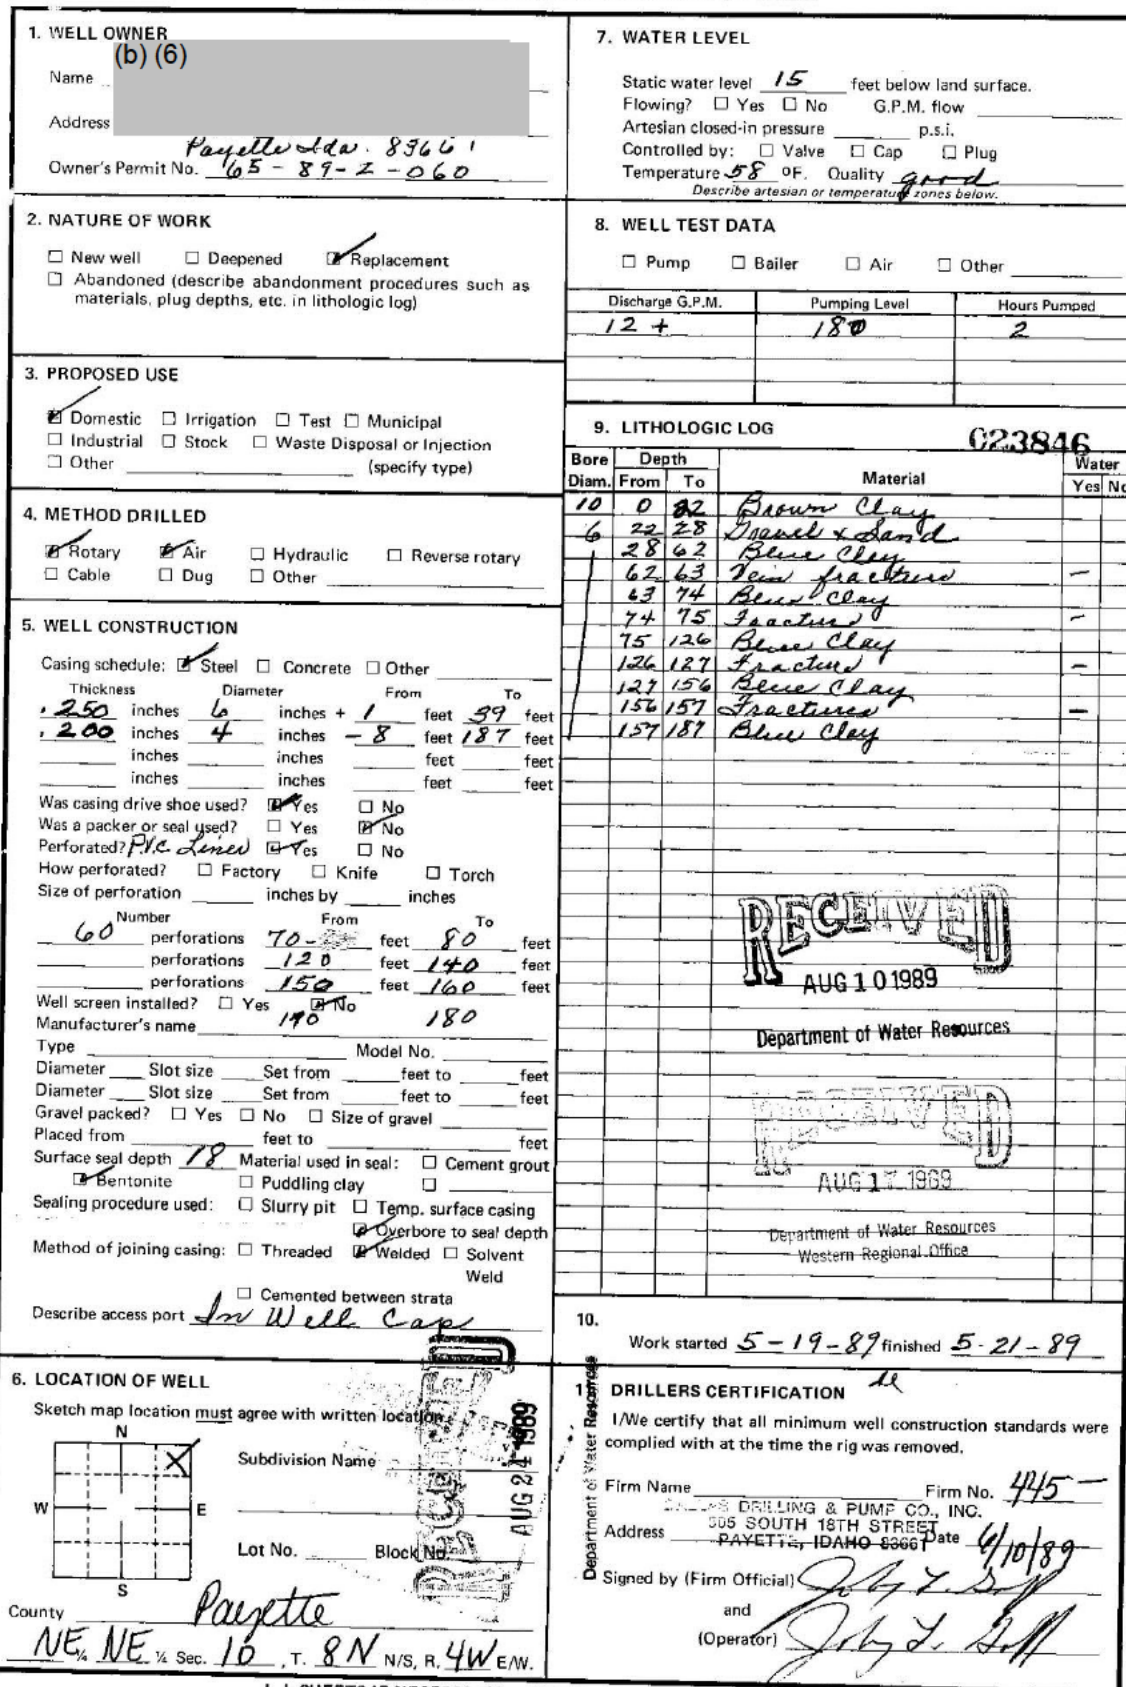 1. WELL OWNER
(b) (6)
Name
Address
Payette Ida. 83661
Owner's Permit No. 65-89-2-060
2. NATURE OF WORK
☐ New well ☐ Deepened ☑ Replacement
☐ Abandoned (describe abandonment procedures such as
materials, plug depths, etc. in lithologic log)
3. PROPOSED USE
☑ Domestic ☐ Irrigation ☐ Test ☐ Municipal
☐ Industrial ☐ Stock ☐ Waste Disposal or Injection
☐ Other (specify type)
4. METHOD DRILLED
☑ Rotary ☑ Air ☐ Hydraulic ☐ Reverse rotary
☐ Cable ☐ Dug ☐ Other
5. WELL CONSTRUCTION
Casing schedule: ☑ Steel ☐ Concrete ☐ Other
Thickness Diameter From To
.250 inches 6 inches + 1 feet 39 feet
.200 inches 4 inches - 8 feet 187 feet
inches inches feet feet
inches inches feet feet
Was casing drive shoe used? ☑ Yes ☐ No
Was a packer or seal used? ☐ Yes ☑ No
Perforated? P.V.C. Liner ☑ Yes ☐ No
How perforated? ☐ Factory ☐ Knife ☐ Torch
Size of perforation inches by inches
Number From To
60 perforations 70- feet 80 feet
perforations 120 feet 140 feet
perforations 150 feet 160 feet
Well screen installed? ☐ Yes ☑ No
Manufacturer's name 180
Type Model No.
Diameter Slot size Set from feet to feet
Diameter Slot size Set from feet to feet
Gravel packed? ☐ Yes ☐ No ☐ Size of gravel
Placed from feet to feet
Surface seal depth 18 Material used in seal: ☐ Cement grout
☑ Bentonite ☐ Puddling clay ☐
Sealing procedure used: ☐ Slurry pit ☐ Temp. surface casing
☑ Overbore to seal depth
Method of joining casing: ☐ Threaded ☑ Welded ☐ Solvent
Weld
☐ Cemented between strata
Describe access port In Well Cap
6. LOCATION OF WELL
Sketch map location must agree with written location.
N
W E
S
X
Subdivision Name
Lot No. Block No.
County Payette
NE ¼ NE ¼ Sec. 10, T. 8N N/S, R. 4W E/W.
RECEIVED
AUG 24 1989
Department of Water Resources
7. WATER LEVEL
Static water level 15 feet below land surface.
Flowing? ☐ Yes ☐ No G.P.M. flow
Artesian closed-in pressure p.s.i.
Controlled by: ☐ Valve ☐ Cap ☐ Plug
Temperature 58 °F. Quality good
Describe artesian or temperature zones below.
8. WELL TEST DATA
☐ Pump ☐ Bailer ☐ Air ☐ Other
Discharge G.P.M. Pumping Level Hours Pumped
12 + 180 2
9. LITHOLOGIC LOG 023846
Bore Depth Water
Diam. From To Material Yes No
10 0 22 Brown Clay
6 22 28 Gravel & Sand
28 62 Blue Clay
62 63 Vein fracture –
63 74 Blue Clay
74 75 Fracture –
75 126 Blue Clay
126 127 Fracture –
127 156 Blue Clay
156 157 Fractures –
157 187 Blue Clay
RECEIVED
AUG 10 1989
Department of Water Resources
RECEIVED
AUG 17 1989
Department of Water Resources
Western Regional Office
10.
Work started 5-19-89 finished 5-21-89
11 DRILLERS CERTIFICATION
I/We certify that all minimum well construction standards were
complied with at the time the rig was removed.
Firm Name Firm No. 445
DRILLING & PUMP CO., INC.
505 SOUTH 18TH STREET
Address PAYETTE, IDAHO 83661 Date 6/10/89
Signed by (Firm Official)
and
(Operator)